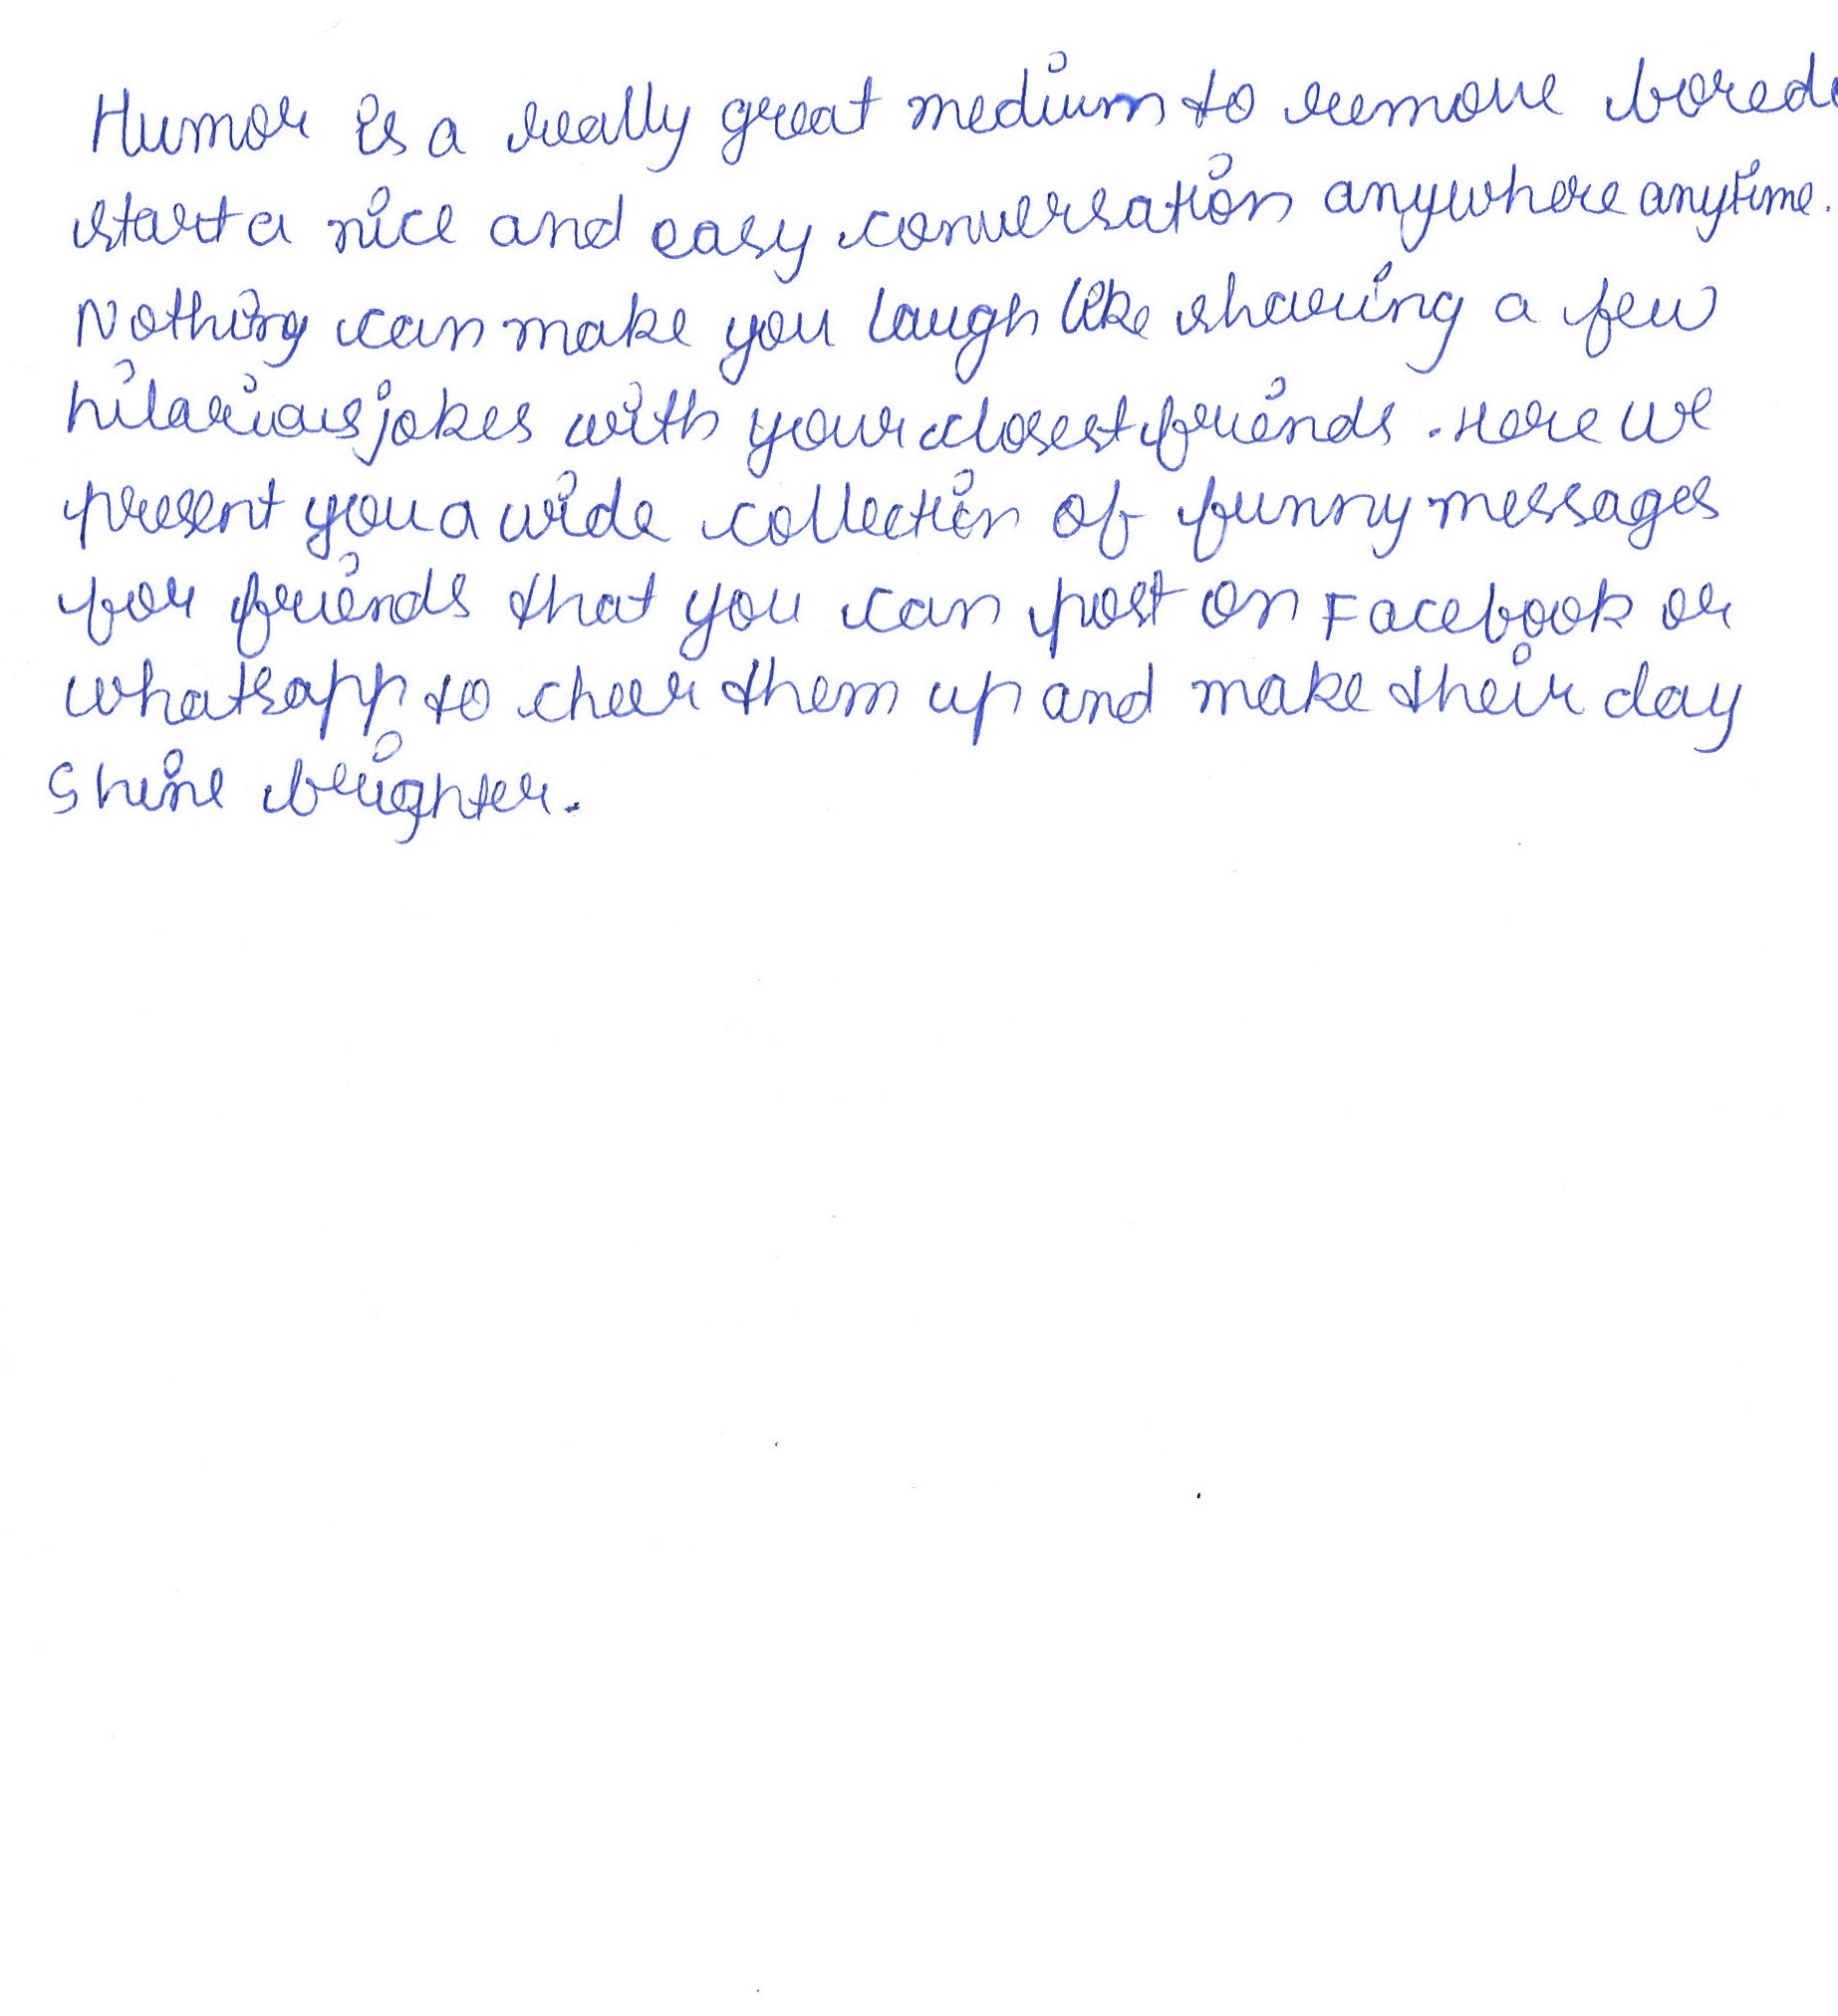 Humor is a really great medium to remove bored
start a nice and easy conversation anywhere anytime.
Nothing can make you laugh like sharing a few
hilarious jokes with your closest friends. Here we
present you a wide collection of funny messages
for friends that you can post on Facebook or
whatsapp to cheer them up and make their day
shine brighter.